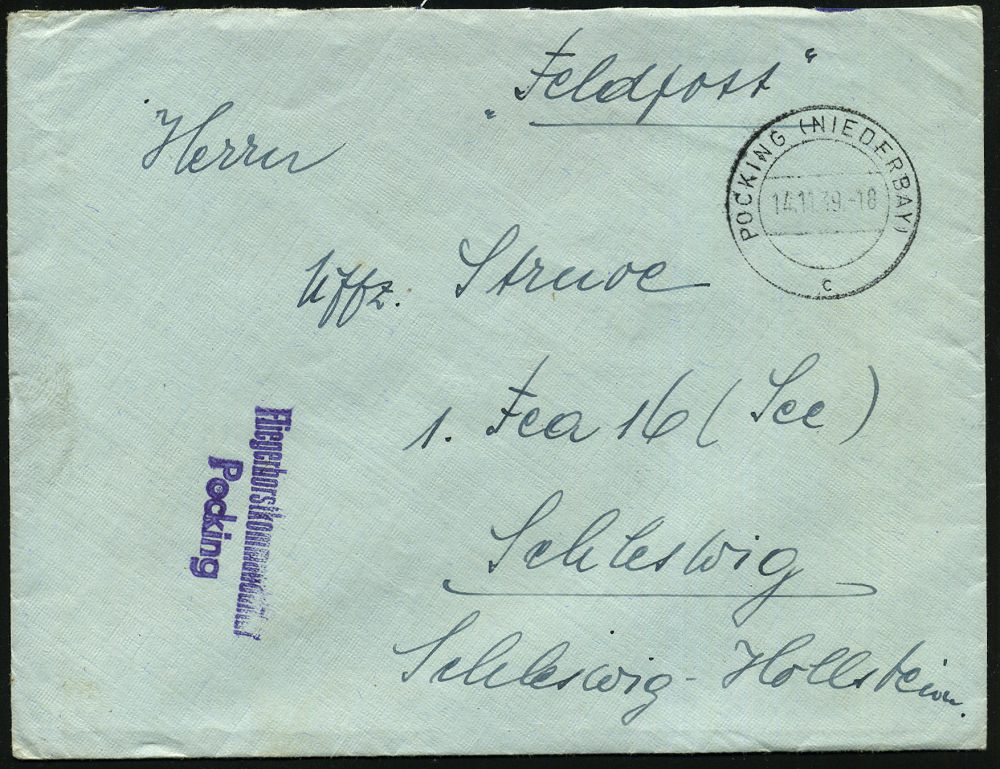 "Feldpost"
Herrn
POCKING (NIEDERBAY)
14.11.39.-18
c
Uffz. Struve
1. Fea 16 (See)
Schleswig
Schleswig-Hollstein.
Fliegerhorstkommandantur
Pocking